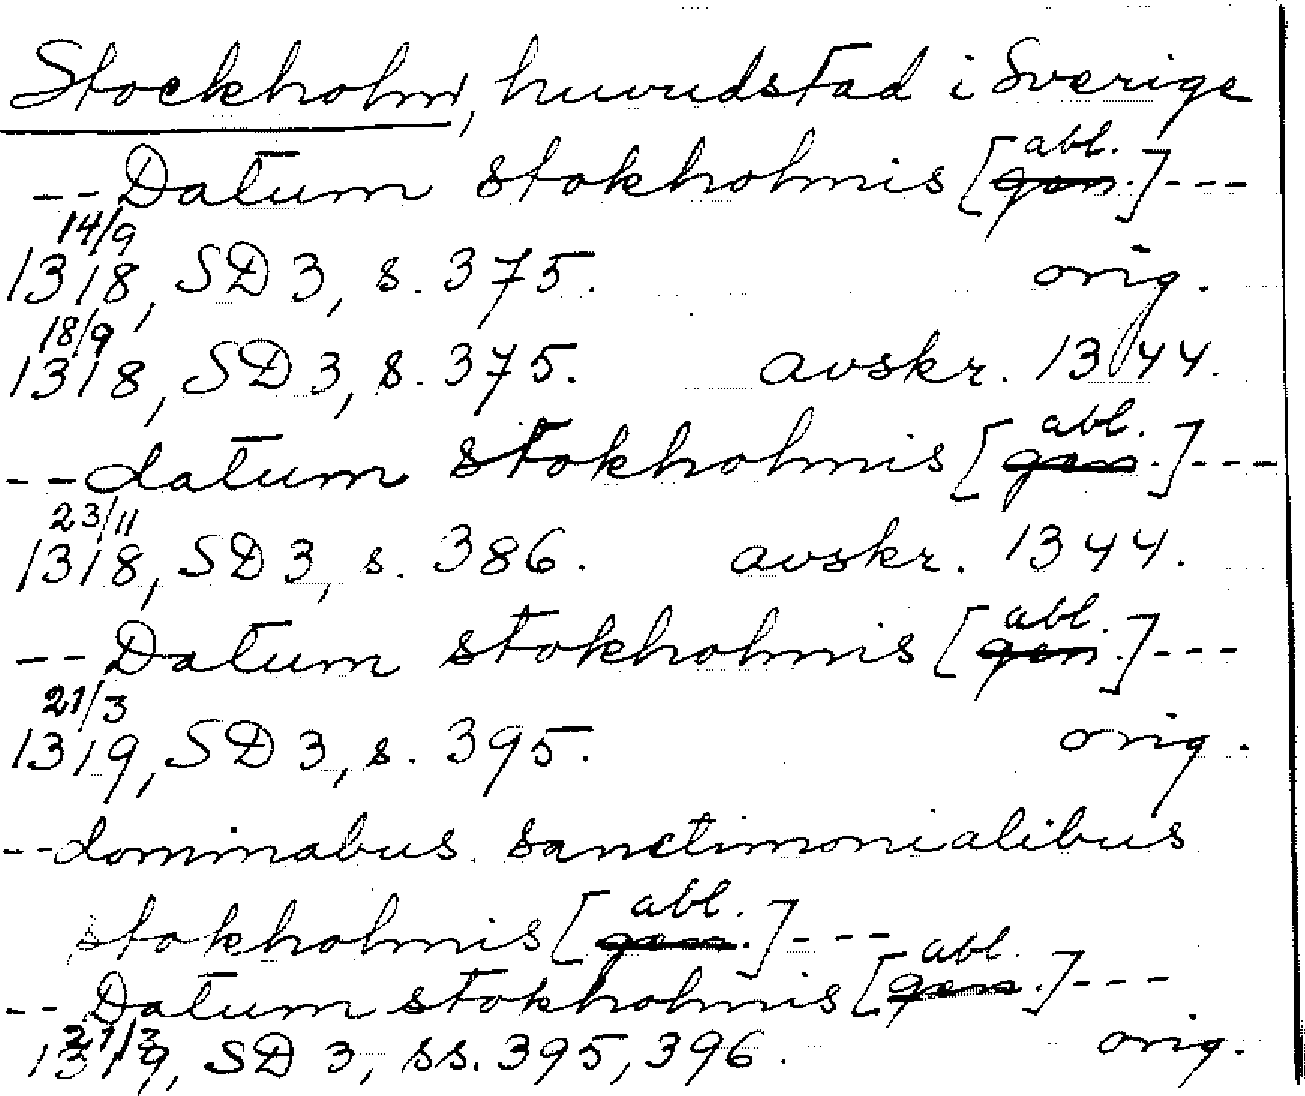 Stockholm, huvudstad i Sverige
-- Datum stokholmis [gen. abl.] ---
14/9
1318, SD 3, s. 375. orig.
18/9
1318, SD 3, s. 375. avskr. 1344.
-- datum stokholmis [gen. abl.] ---
23/11
1318, SD 3, s. 386. avskr. 1344.
-- Datum stokholmis [gen. abl.] ---
21/3
1319, SD 3, s. 395. orig.
-- dominabus sanctimonialibus
stokholmis [gen. abl.] ---
-- Datum stokholmis [gen. abl.] ---
21/3
1319, SD 3, ss. 395, 396. orig.